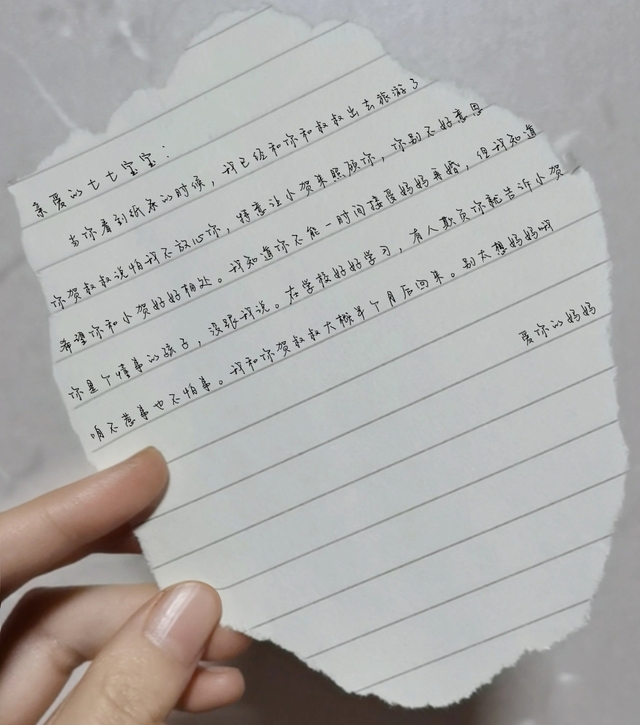 亲爱的七七宝宝：
当你看到纸条的时候，我已经和你和叔叔出去旅游了
你贺叔叔说怕我不放心你，特意让小贺来照顾你，你别不好意思
希望你和小贺好好相处。我知道你不能一时间接受妈妈再婚，但我知道
你是个懂事的孩子，没跟我说。在学校好好学习，有人欺负你就告诉小贺
咱不惹事也不怕事。我和你贺叔叔大概半个月后回来。别太想妈妈哦
爱你的妈妈